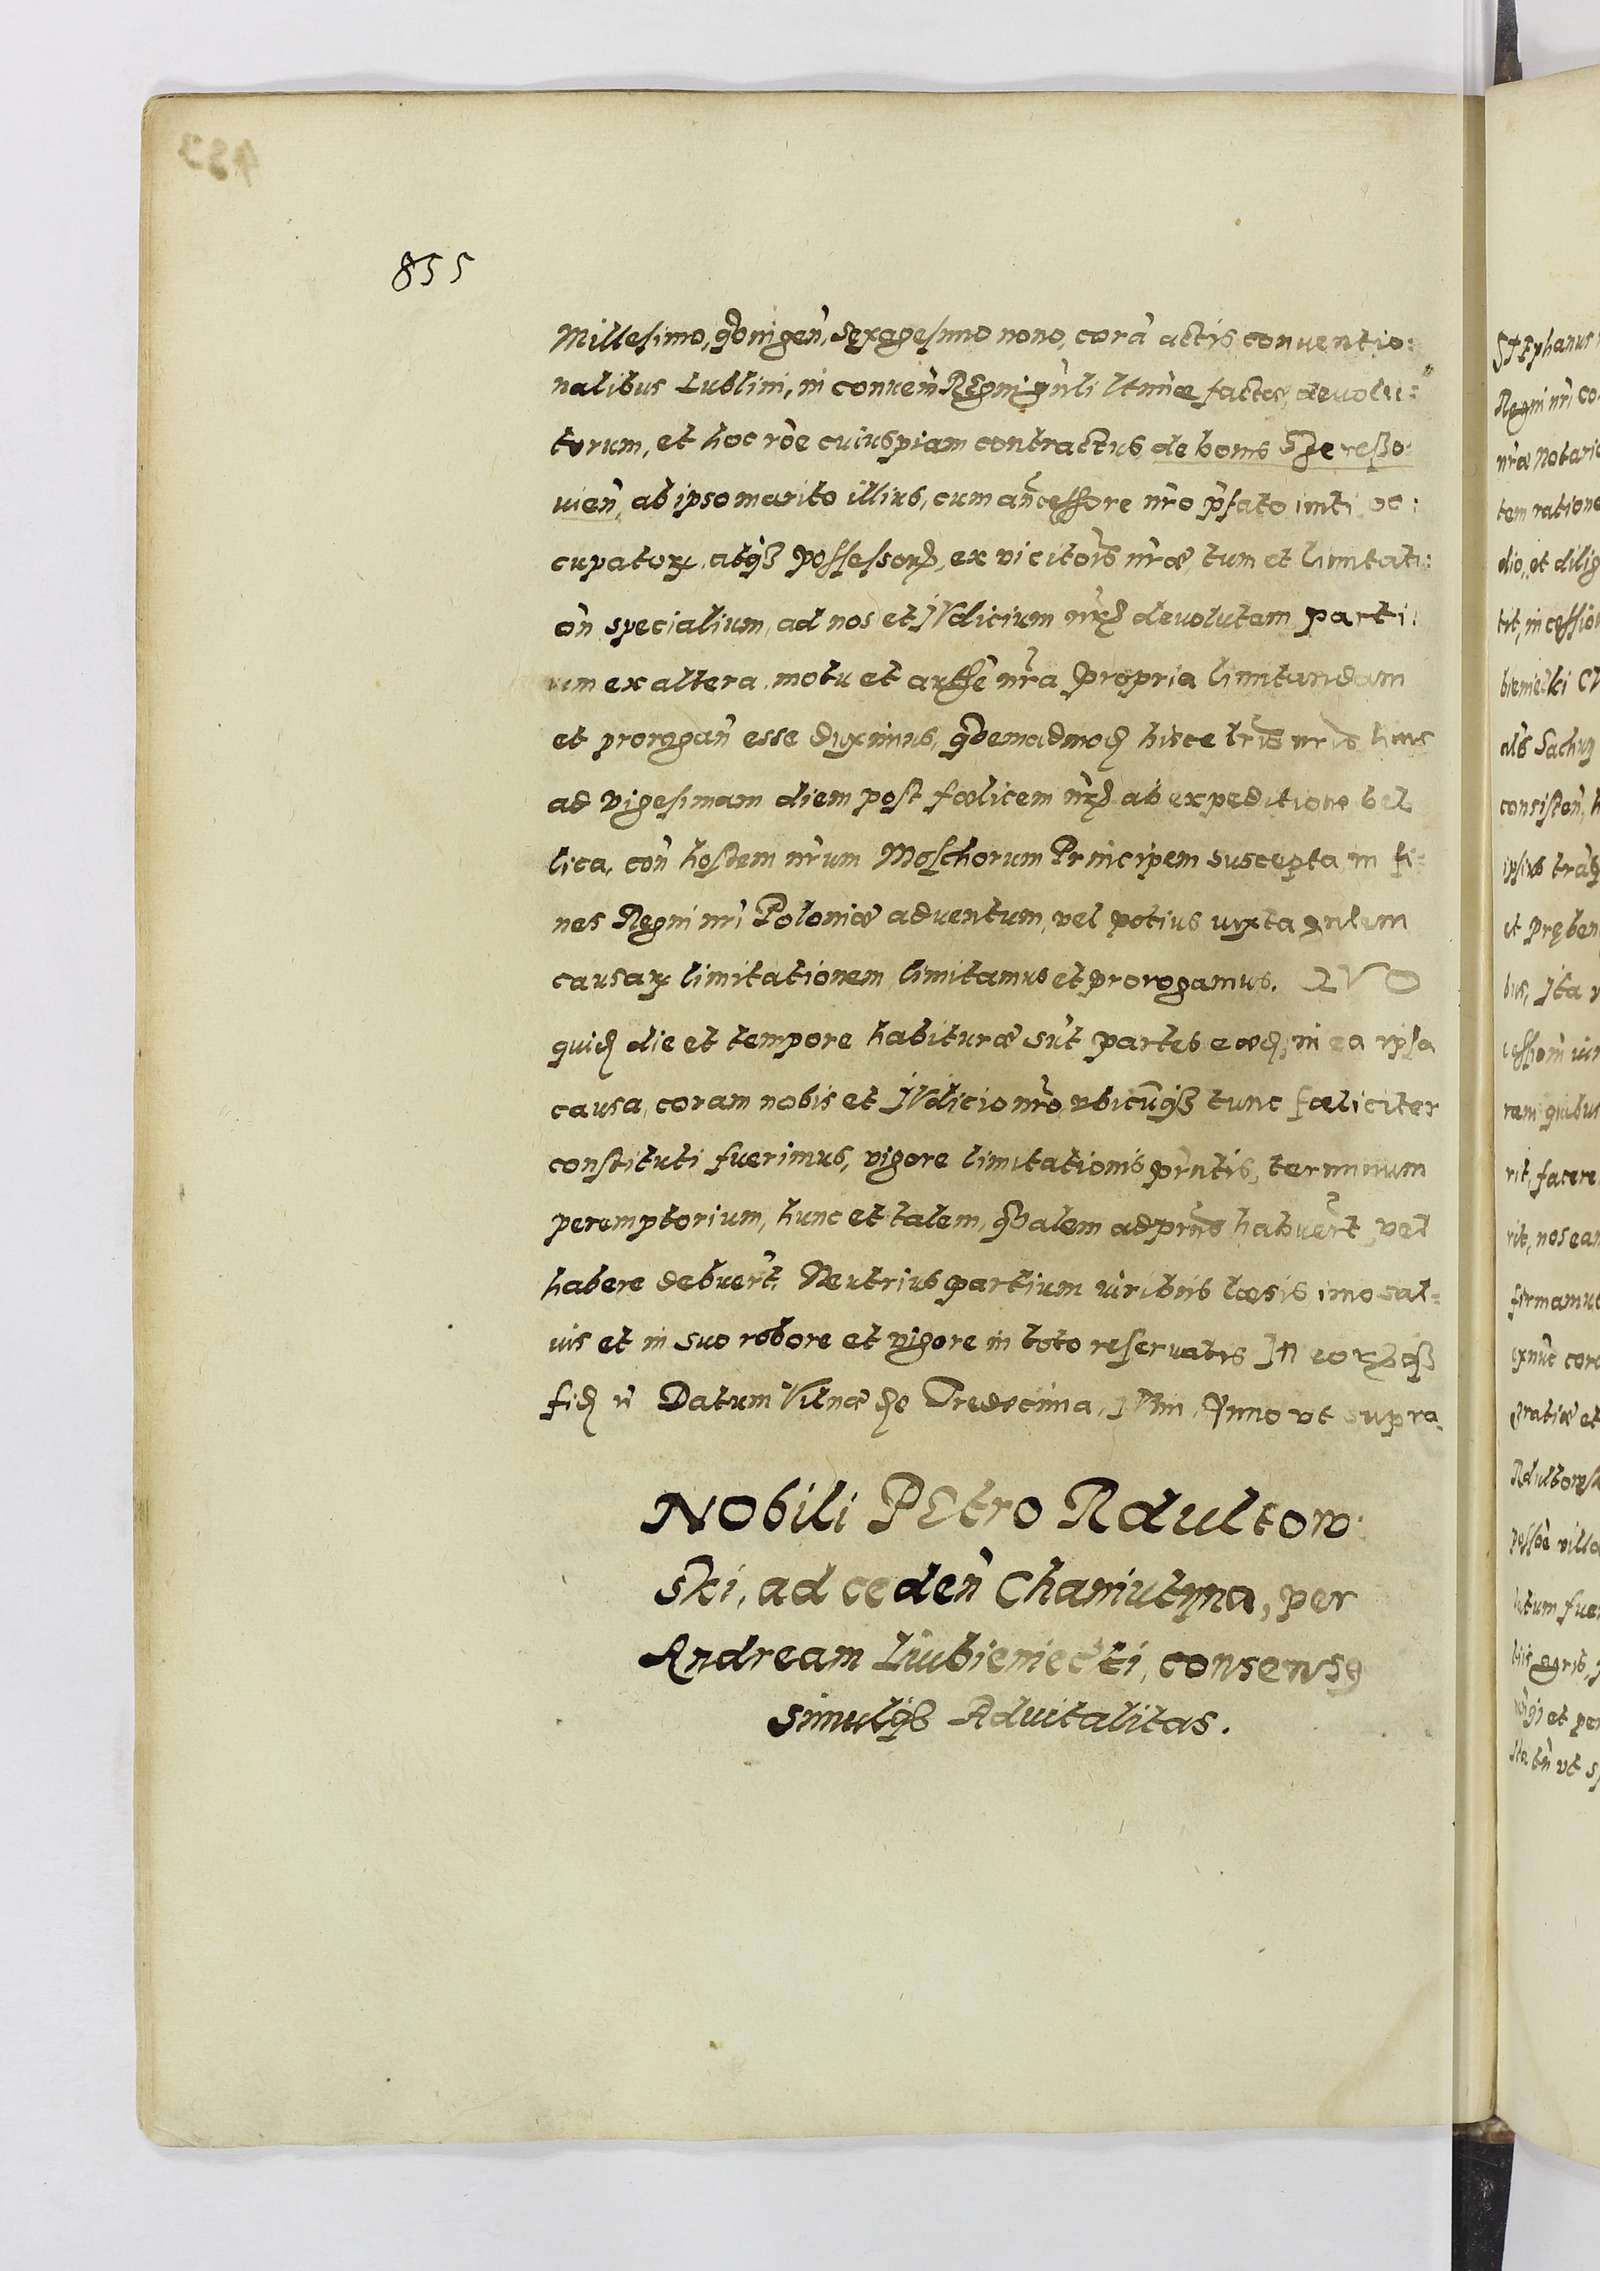 855
Millesimo, qvingeñ, sexagesimo nono, corã actis conventio:
nalibus Lublini, in conven̄ Regni gn̄li ltimæ factæ, devolu:
torum, et hoc rõe cuiuspiam contractus de bonis
vien̄, ab ipso marito illius, cum añcessore nr̃o p̃fato oc:
cupator, atq3 possessor, ex vi citõis nr̃æ tum et limitati:
õn specialium, ad nos et iVdicium nr̃ devolutam parti:
um ex altera, motu et authẽ nr̃a propria limitandam
et prorogan̄ esse duximus, qvemadmod hisce lr̃is nr̃is
ad vigesimam diem post fœlicem nr̃ ab expeditione bel
lica, con̄ hostem nr̃um Moschorum Principem suscepta in fi:
nes Regni nr̃i Poloniæ adventum, vel potius iuxta gn̄lem
causar limitationem limitamus et prorogamus. QVO
quid die et tempore habituræ sūt partes eæd, in ea ipsa
causa, coram nobis et iVdicio nr̃o, vbicūq3 tunc fœliciter
constituti fuerimus, vigore limitationis pñtis, terminum
peremptorium, hunc et talem, qvalem ad pñs habuer̃t vel
habere debuer̃t. Neutrius partium iuribus læsis, imo sal=
vis et in suo robore et vigore in toto reservatis In
fid Datum Vilnæ Tredecima, Anno vt supra.
NObili PEtro Rdultow:
ski, ad ceden̄ Chaniutyna, per
Andream Lubieniecki, consensq
simulq3 Advitalitas.
STEphanus
Regni nr̃i co
nr̃æ Notari
tem ratione
dio, et dilig
tit, in cession
bieniecki
als Sachuy
consisten̄, h
ipsius
et Prębēn
bus, Ita v
ram quibus
rit, facere
rit, nos ean
firmamus
exnūc cora
gratiæ et
Rdultowsk
villa